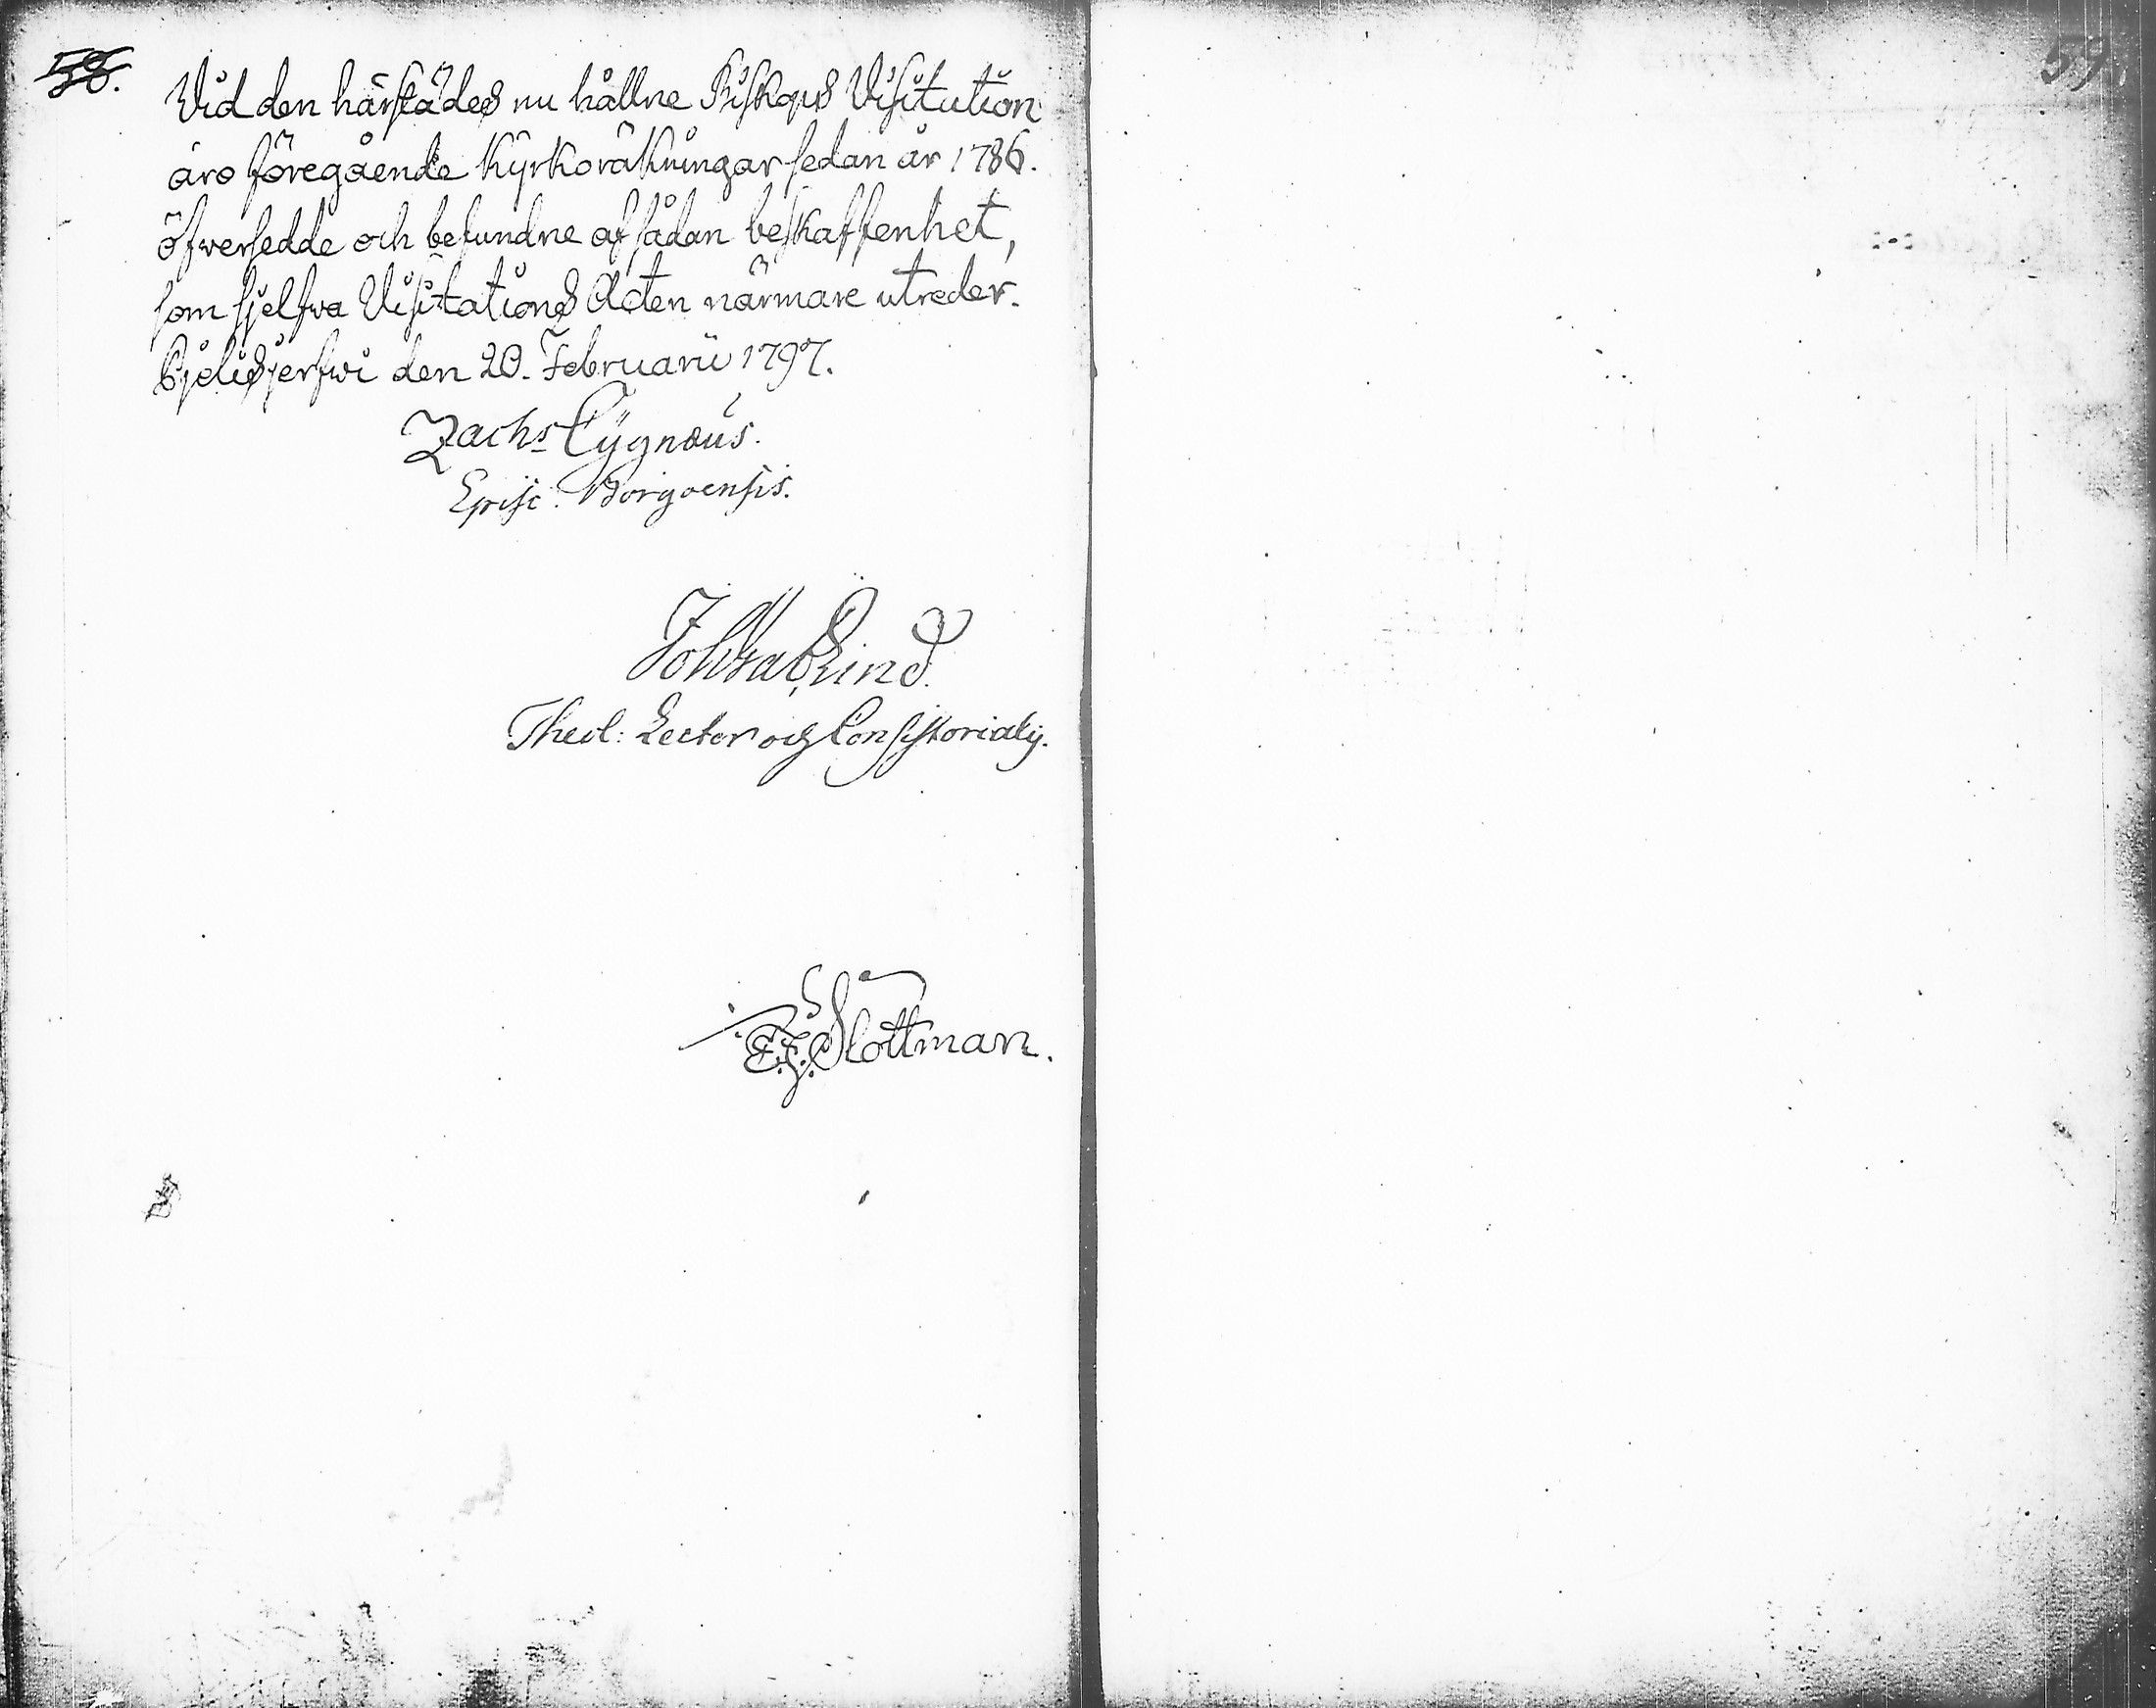 58.
Vid den härstädes nu hållne Biskops Visitation
äro föregående Kyrkoräkningar sedan år 1786.
öfversedde och befundne af sådan beskaffenhet,
som sjelfva Visitations Acten närmare utreder.
den 20. Februarii 1797.
Zachs Cygnæus.
Episc: Borgoensis.
Theol: Lector och Consistorialis.
Slottman.
59